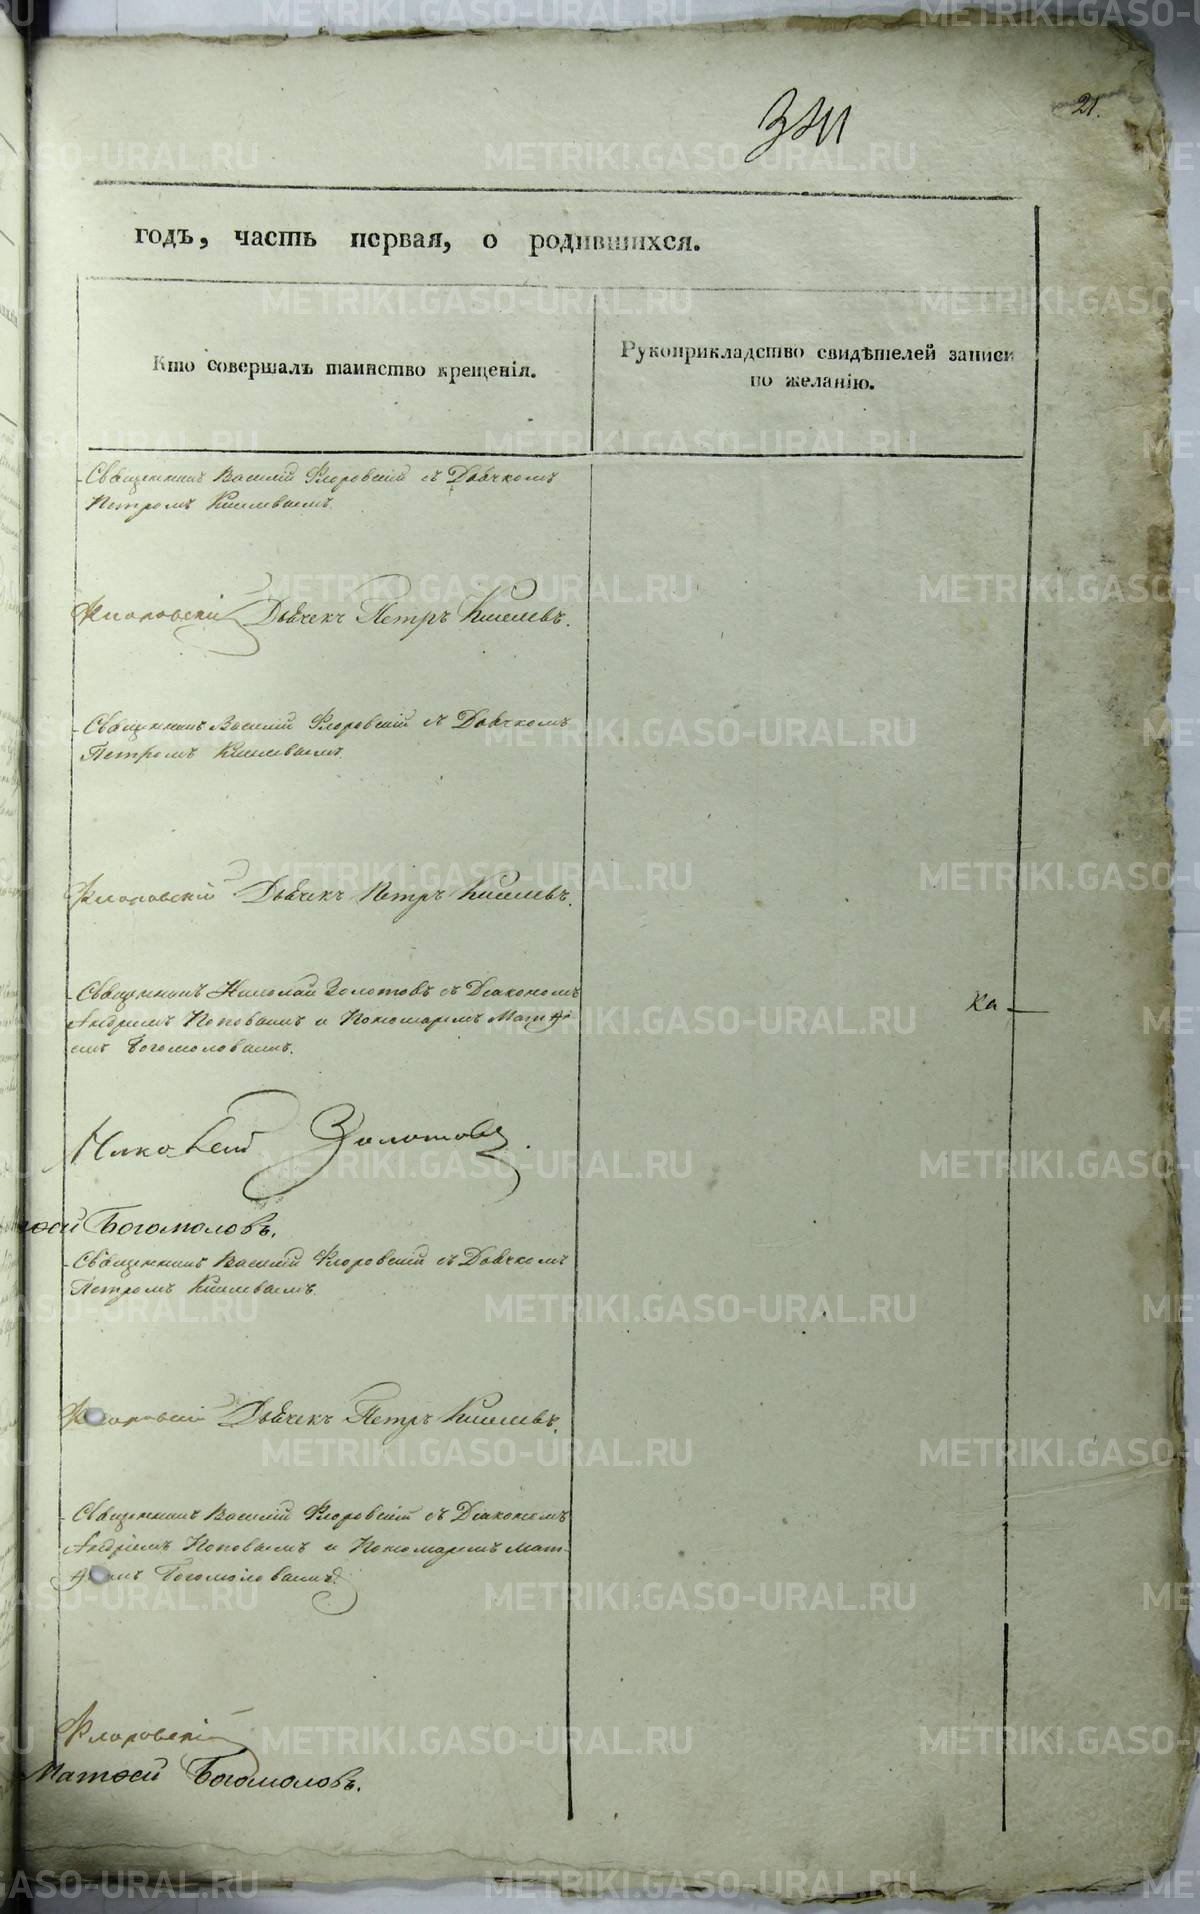 21.
годъ, часть первая, о родившихся.
Кто совершалъ таинство крещенія.
Рукоприкладство свидѣтелей записи
по желанію.
Священникъ Василій Флоровскій съ Дьячкомъ
Петромъ Киселевымъ.
Флоровскій Дьячекъ Петръ Киселевъ.
Священникъ Василій Флоровскій съ Дьячкомъ
Петромъ Киселевымъ.
Флоровскій Дьячекъ Петръ Киселевъ.
Священникъ Николай Золотовъ съ Діакономъ
Андреемъ Поповымъ и Пономаремъ Матѳѣ
емъ Богомоловымъ.
ка
Николай Золотовъ.
Богомоловъ.
Священникъ Василій Флоровскій съ Дьячкомъ
Петромъ Киселевымъ.
Флоровскій Дьячекъ Петръ Киселевъ.
Священникъ Василій Флоровскій съ Діакономъ
Андреемъ Поповымъ и Пономаремъ Мат-
ѳѣемъ Богомоловымъ.
Флоровскій
Матѳей Богомоловъ.
METRIKI.GASO-URAL.RU